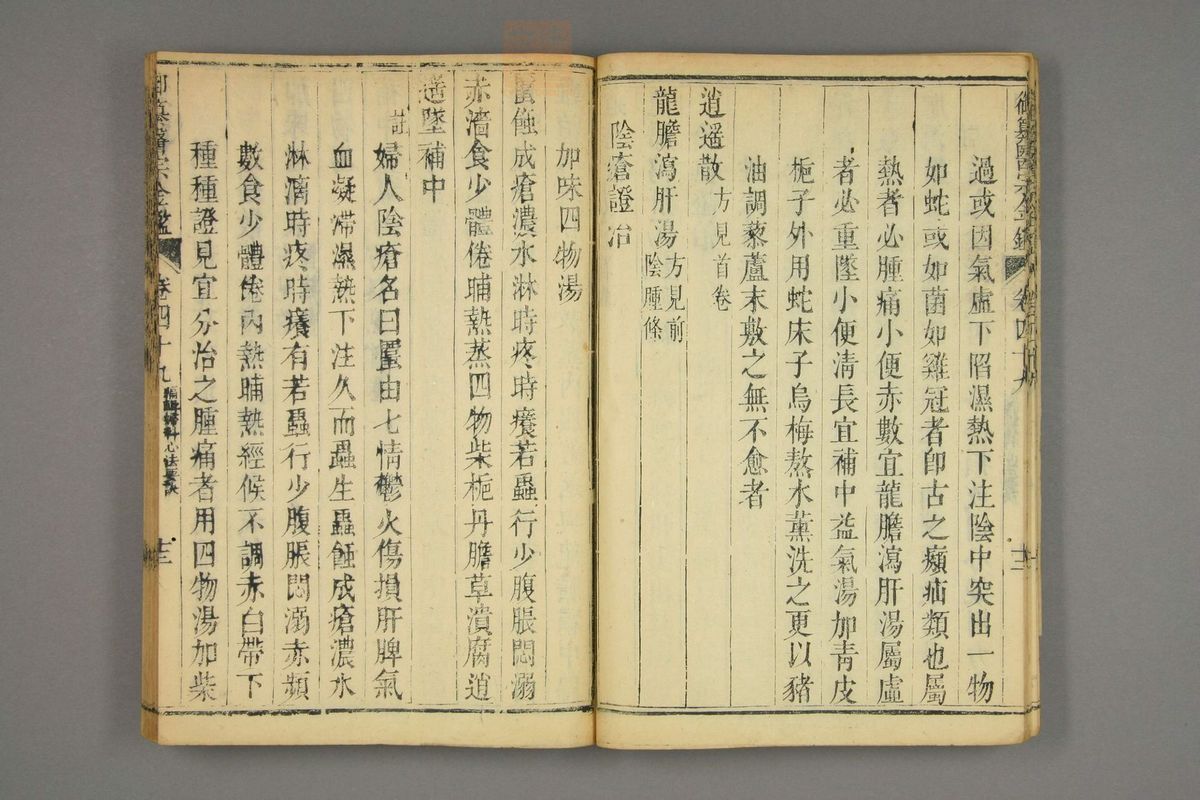 過或因氣虛下陷濕熱下注陰中突出一物
如蛇或如菌如雞冠者卽古之㿗疝類也屬
熱者必腫痛小便赤數宜龍膽瀉肝湯屬虛
者必重墜小便清長宜補中益氣湯加青皮
梔子外用蛇床子烏梅熬水薰洗之更以豬
油調藜蘆末敷之無不愈者
逍遥散方見首卷
龍膽瀉肝湯方見前陰腫條
陰瘡證治
加味四物湯
䘌蝕成瘡濃水淋時疼時癢若蟲行少腹脹悶溺
赤濇食少體倦晡熱蒸四物柴梔丹膽草潰腐逍
遥墜補中
註 婦人陰瘡名曰䘌由七情鬱火傷損肝脾氣
血凝滯濕熱下注久而蟲生蟲蝕成瘡濃水
淋漓時疼時癢有若蟲行少腹脹悶溺赤頻
數食少體倦內熱晡熱經候不調赤白帶下
種種證見宜分治之腫痛者用四物湯加柴
御纂醫宗金鑑 卷四十九 編輯婦科心法要訣 十三